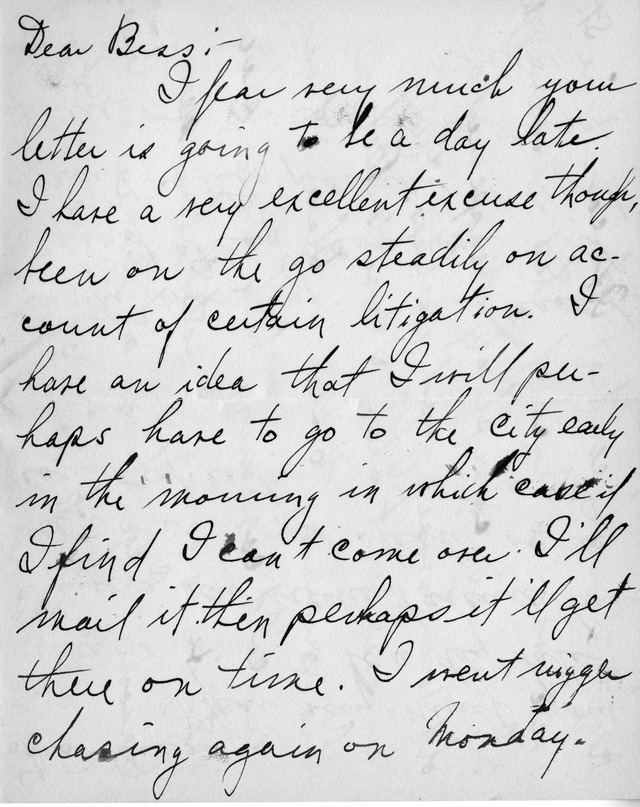 Dear Bess:-
I fear very much your
letter is going to be a day late.
I have a very excellent excuse though,
been on the go steadily on ac-
count of certain litigation. I
have an idea that I will per-
haps have to go to the city early
in the morning in which case if
I find I can't come over. I'll
mail it then perhaps it'll get
there on time. I went nigger
chasing again on Monday.